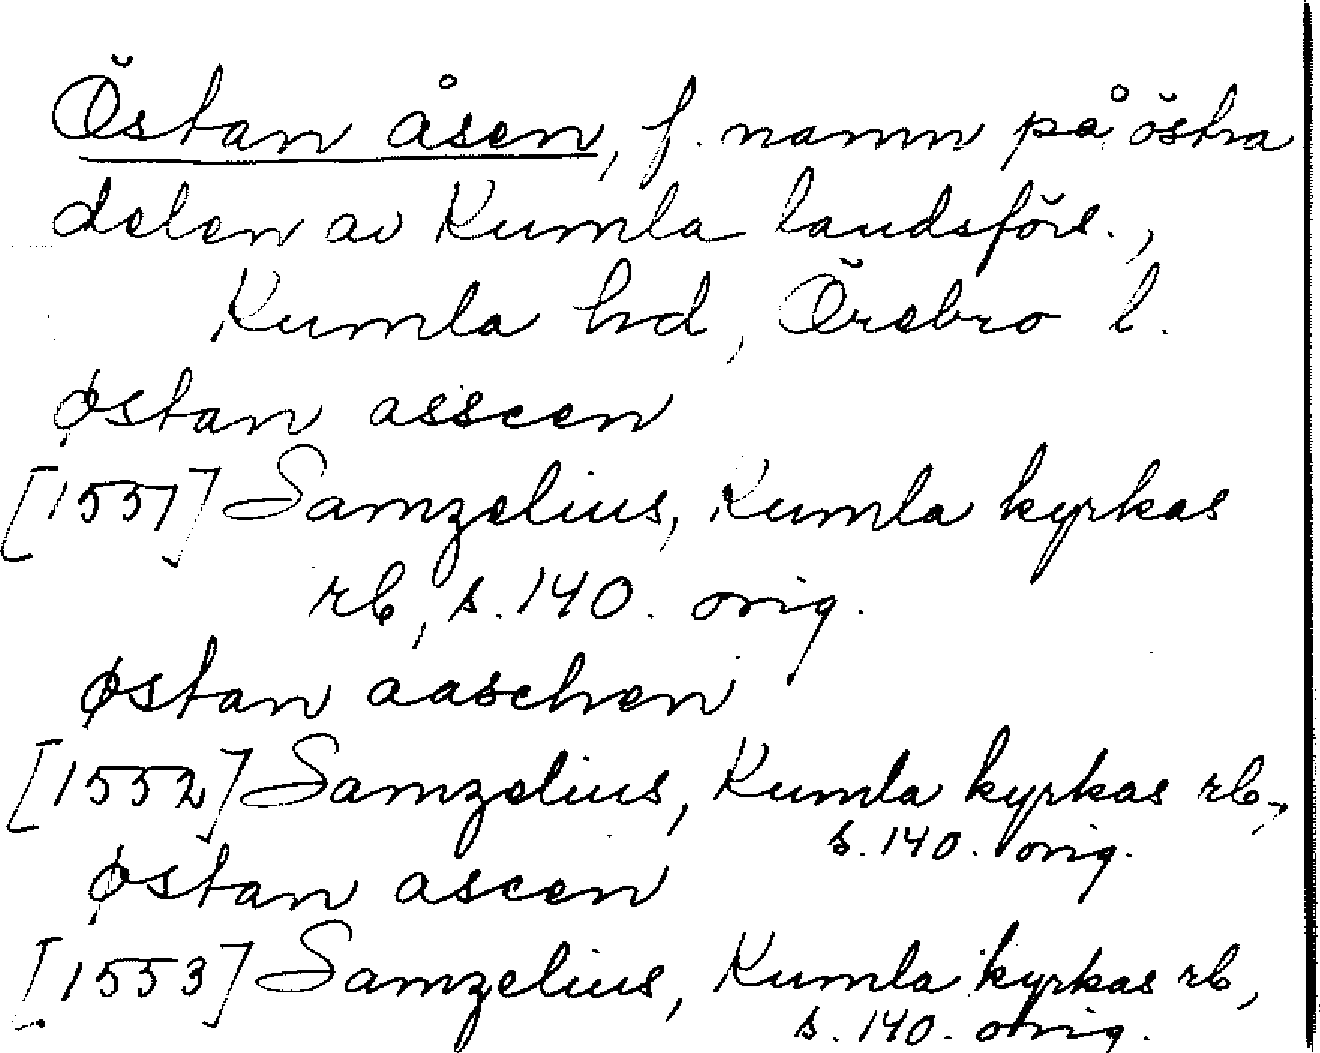 Östan åsen, f. namn på östra
delen av Kumla landsförs.,
Kumla hd, Örebro l.
østan asseen
[1551] Samzelius, Kumla kyrkas
rb, s. 140. orig.
østan aaschen
[1552] Samzelius, Kumla kyrkas rb,
s. 140. orig.
østan aseen
[1553] Samzelius, Kumla kyrkas rb,
s. 140. orig.